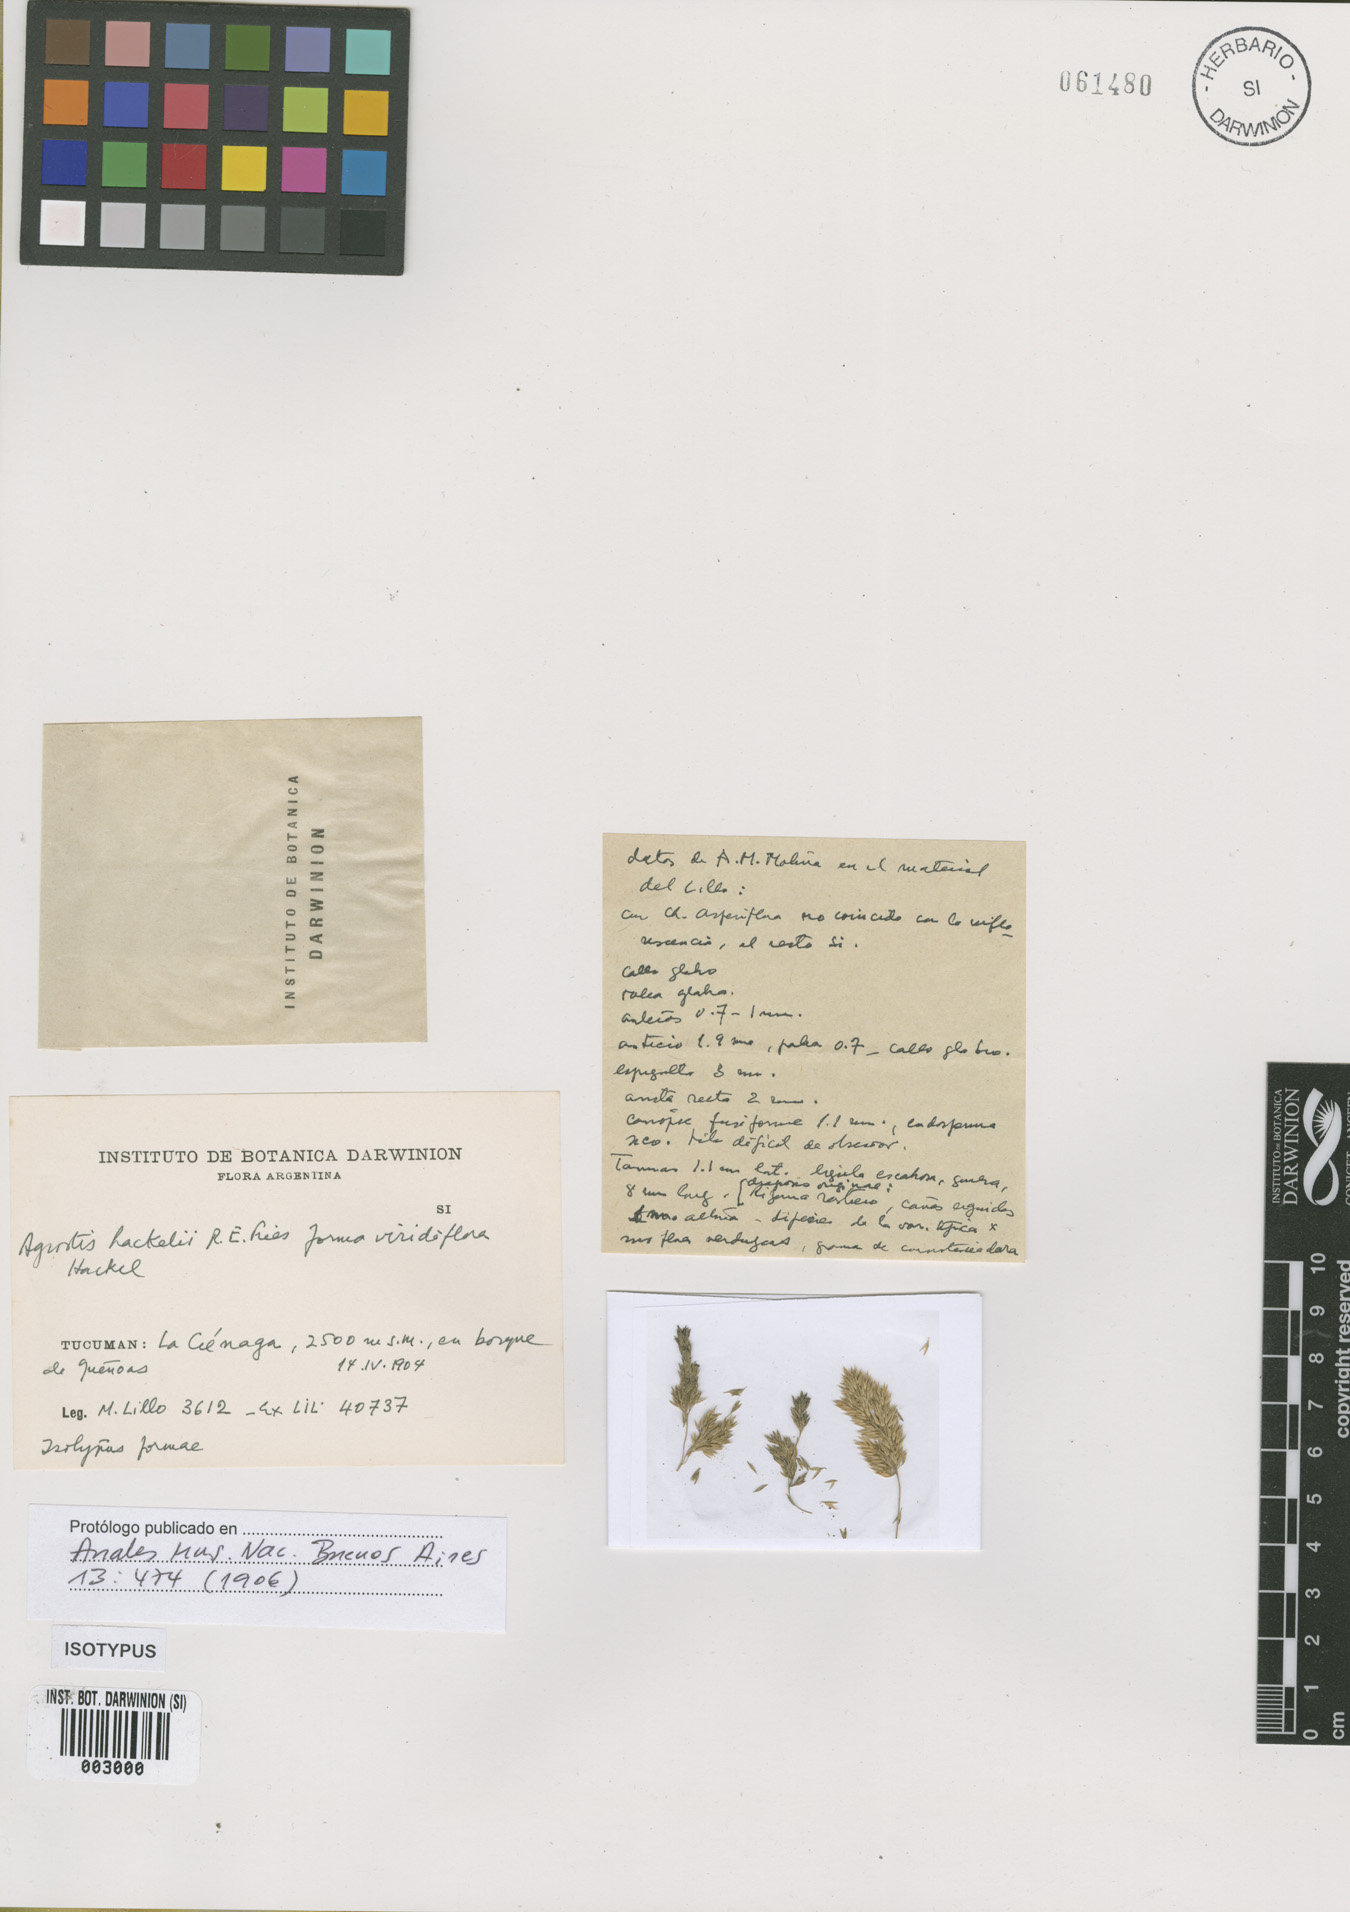 061480
- HERBARIO -
SI
DARWINION
INSTITUTO DE BOTANICA
DARWINION
datos de A.M. Molina en el material
del Lillo:
no coincide con la inflo-
rescencia, el resto si.
callo glabro
palea glabra.
anteras 0.7 - 1 mm.
antecio 1.9 mm, palea 0.7 - callo glabro.
espiguilla 3 mm.
arista recta 2 mm.
cariopse fusiforme 1.1 mm., endosperma
seco. hilo dificil de observar.
1.1 mm lat. ligula escabrosa,
8 mm long. diagnosis originae:
rastrero, cañas erguidas
altura - difiere de la var. tipica x
sus flores verduzcas, de consistencia dura
INSTITUTO DE BOTANICA DARWINION
FLORA ARGENTINA
SI
Agrostis hackelii R.E. Fries forma viridiflora
Hackel
TUCUMAN: La Ciénaga, 2500 m s.m., en bosque
de queñoas 14.IV.1904
Leg. M. Lillo 3612 - Ex LIL 40737
Isotypus formae
Protólogo publicado en
Anales Mus. Nac. Buenos Aires
13: 474 (1906)
ISOTYPUS
INST. BOT. DARWINION (SI)
003000
INSTITUTO DE BOTANICA
DARWINION
copyright reserved
0 1 2 3 4 5 6 7 8 9 10
cm